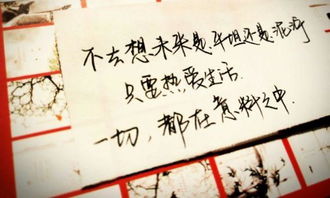 不去想未来是平坦还是泥泞
只要热爱生活
一切，都在意料之中